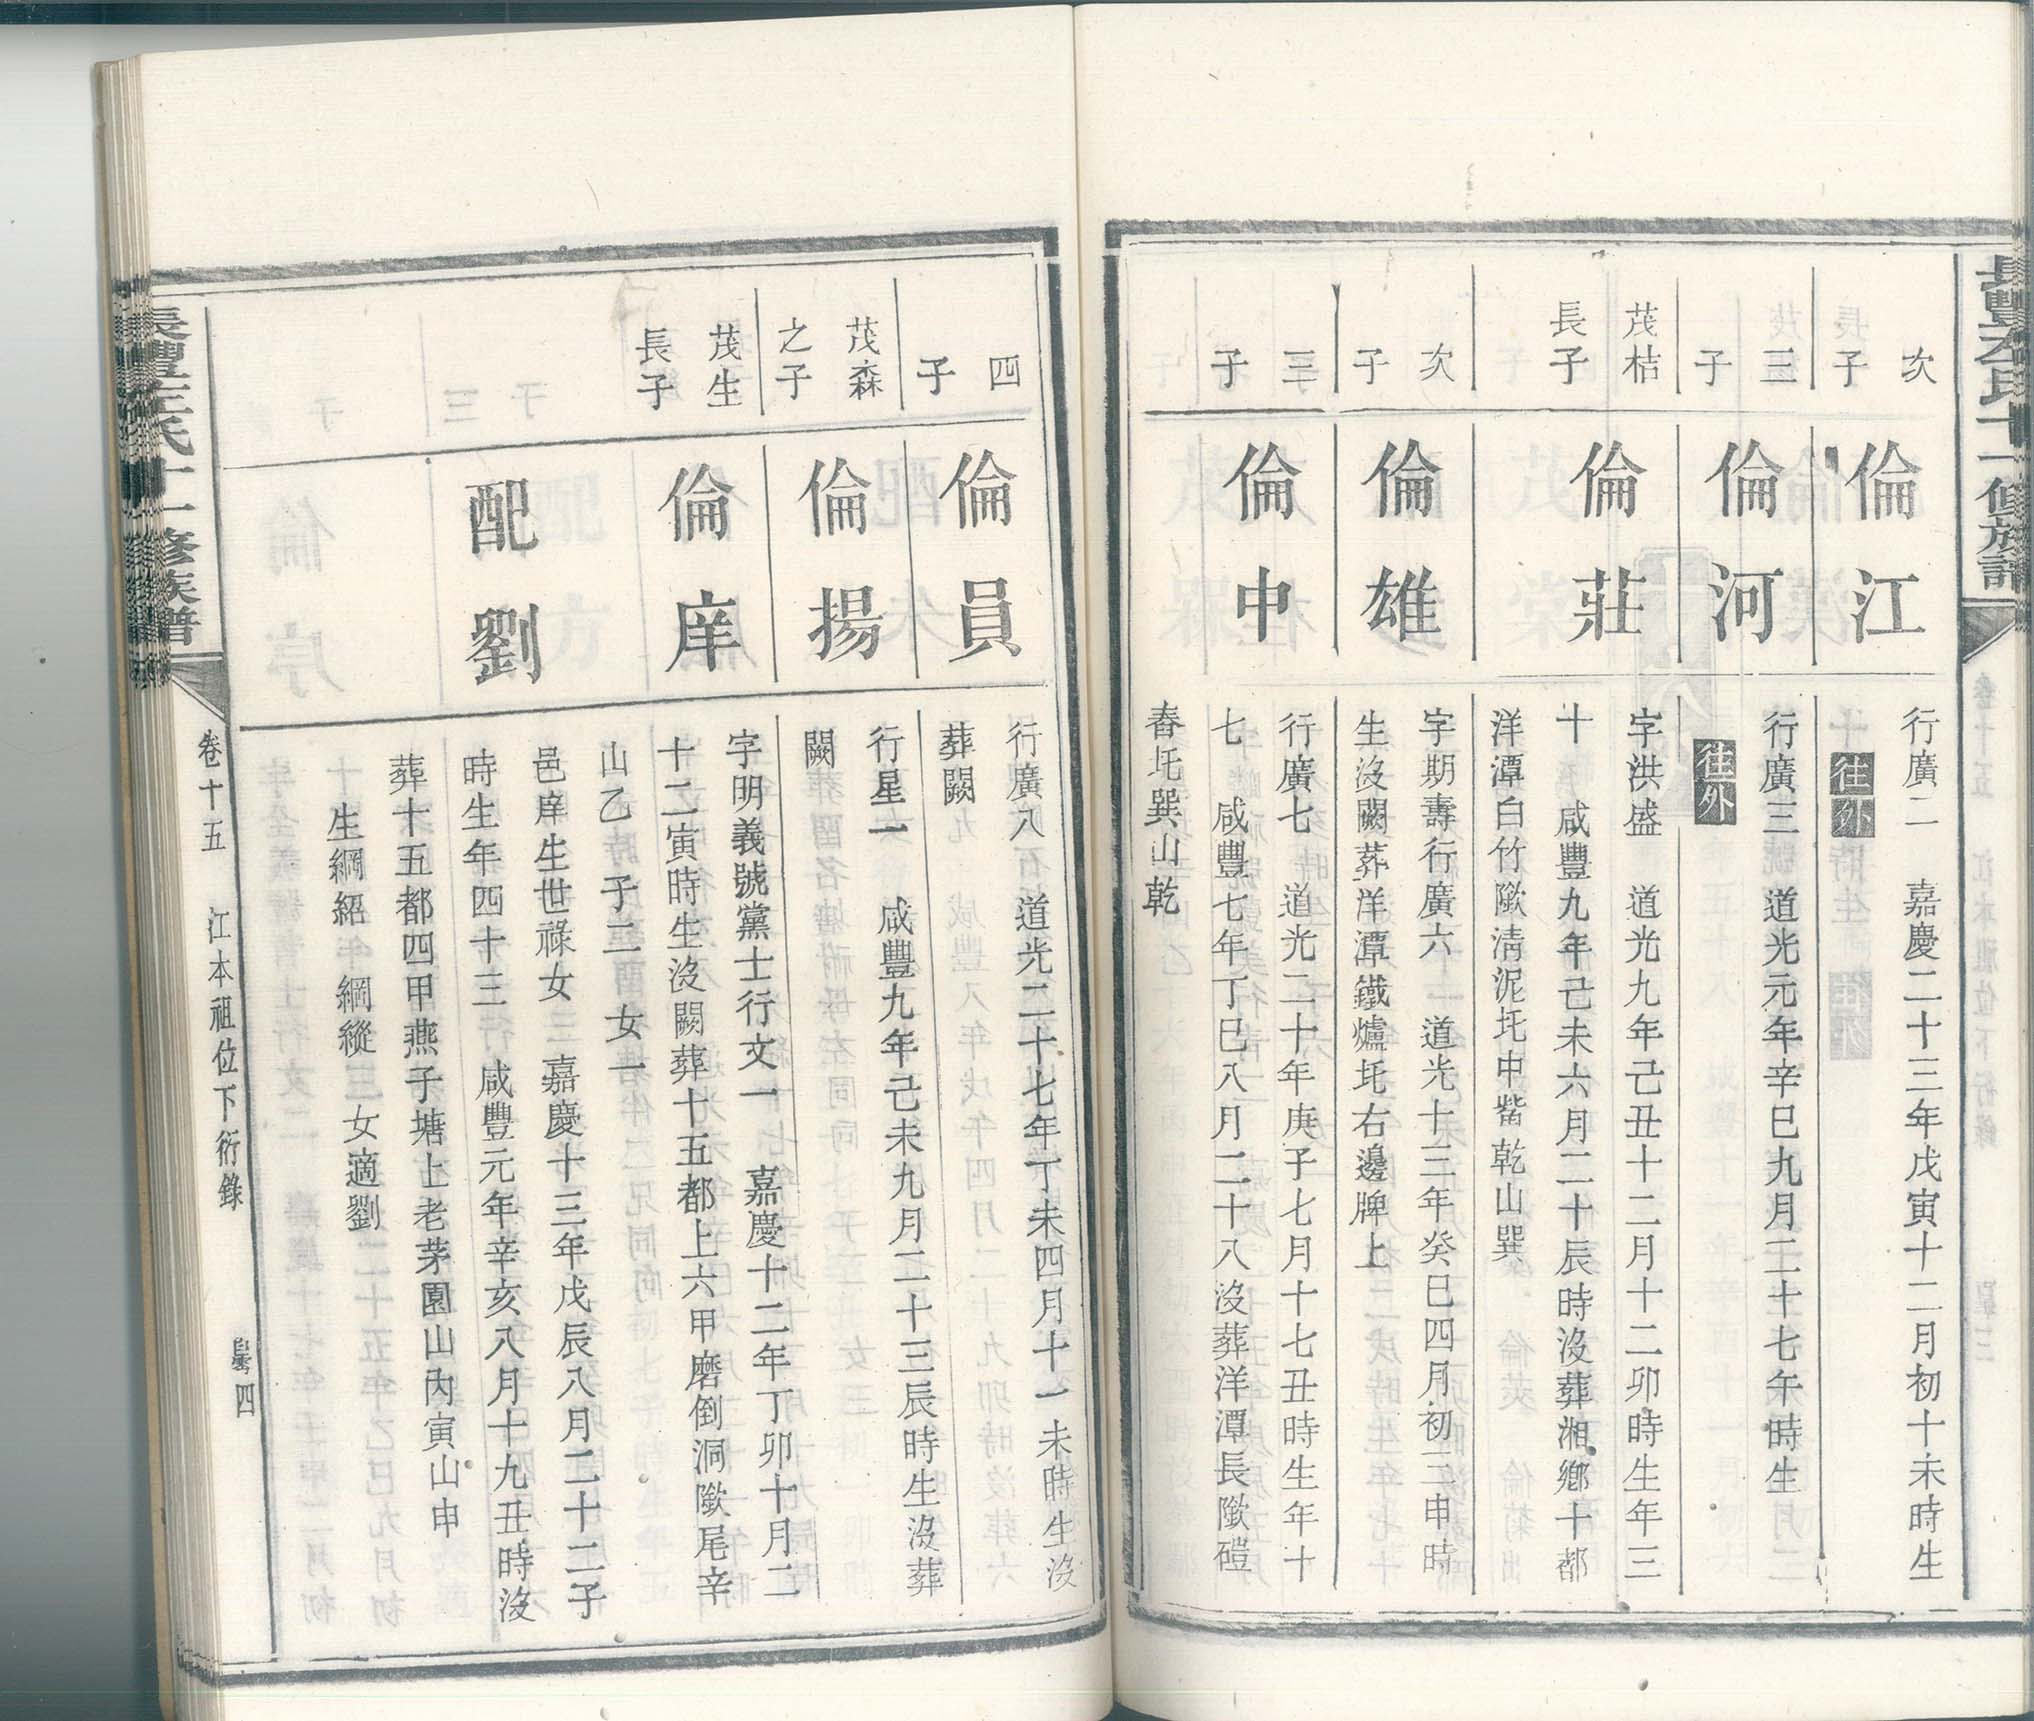 長豐左氏十一修族譜
次
子
倫江
行廣二　嘉慶二十三年戊寅十二月初十未時生
往外
三
子
倫河
行廣三　道光元年辛巳九月二十七午時生
往外
茂桔
長子
倫莊
字洪盛　道光九年己丑十二月十二卯時生年三
十　咸豐九年己未六月二十辰時沒葬湘鄉十都
洋潭白竹隞淸泥圫中嘴乾山巽
次
子
倫雄
字期壽行廣六　道光十三年癸巳四月初三申時
生沒闕葬洋潭鐵爐圫右邊牌上
三
子
倫中
行廣七　道光二十年庚子七月十七丑時生年十
七　咸豐七年丁巳八月二十八沒葬洋潭長隞磑
春圫巽山乾
四
子
倫員
行廣八　道光二十七年丁未四月十一未時生沒
葬闕
茂森
之子
倫揚
行星一　咸豐九年己未九月二十三辰時生沒葬
闕
茂生
長子
倫庠
字明義號黨士行文一　嘉慶十二年丁卯十月二
十二寅時生沒闕葬十五都上六甲磨倒洞隞尾辛
山乙　子二　女一
配劉
邑庠生世祿女　嘉慶十三年戊辰八月二十二子
時生年四十三　咸豐元年辛亥八月十九丑時沒
葬十五都四甲燕子塘上老茅園山內寅山申
生綱紹　綱縱　女適劉
長豐左氏十一修族譜
卷十五　江本祖位下衍錄
四